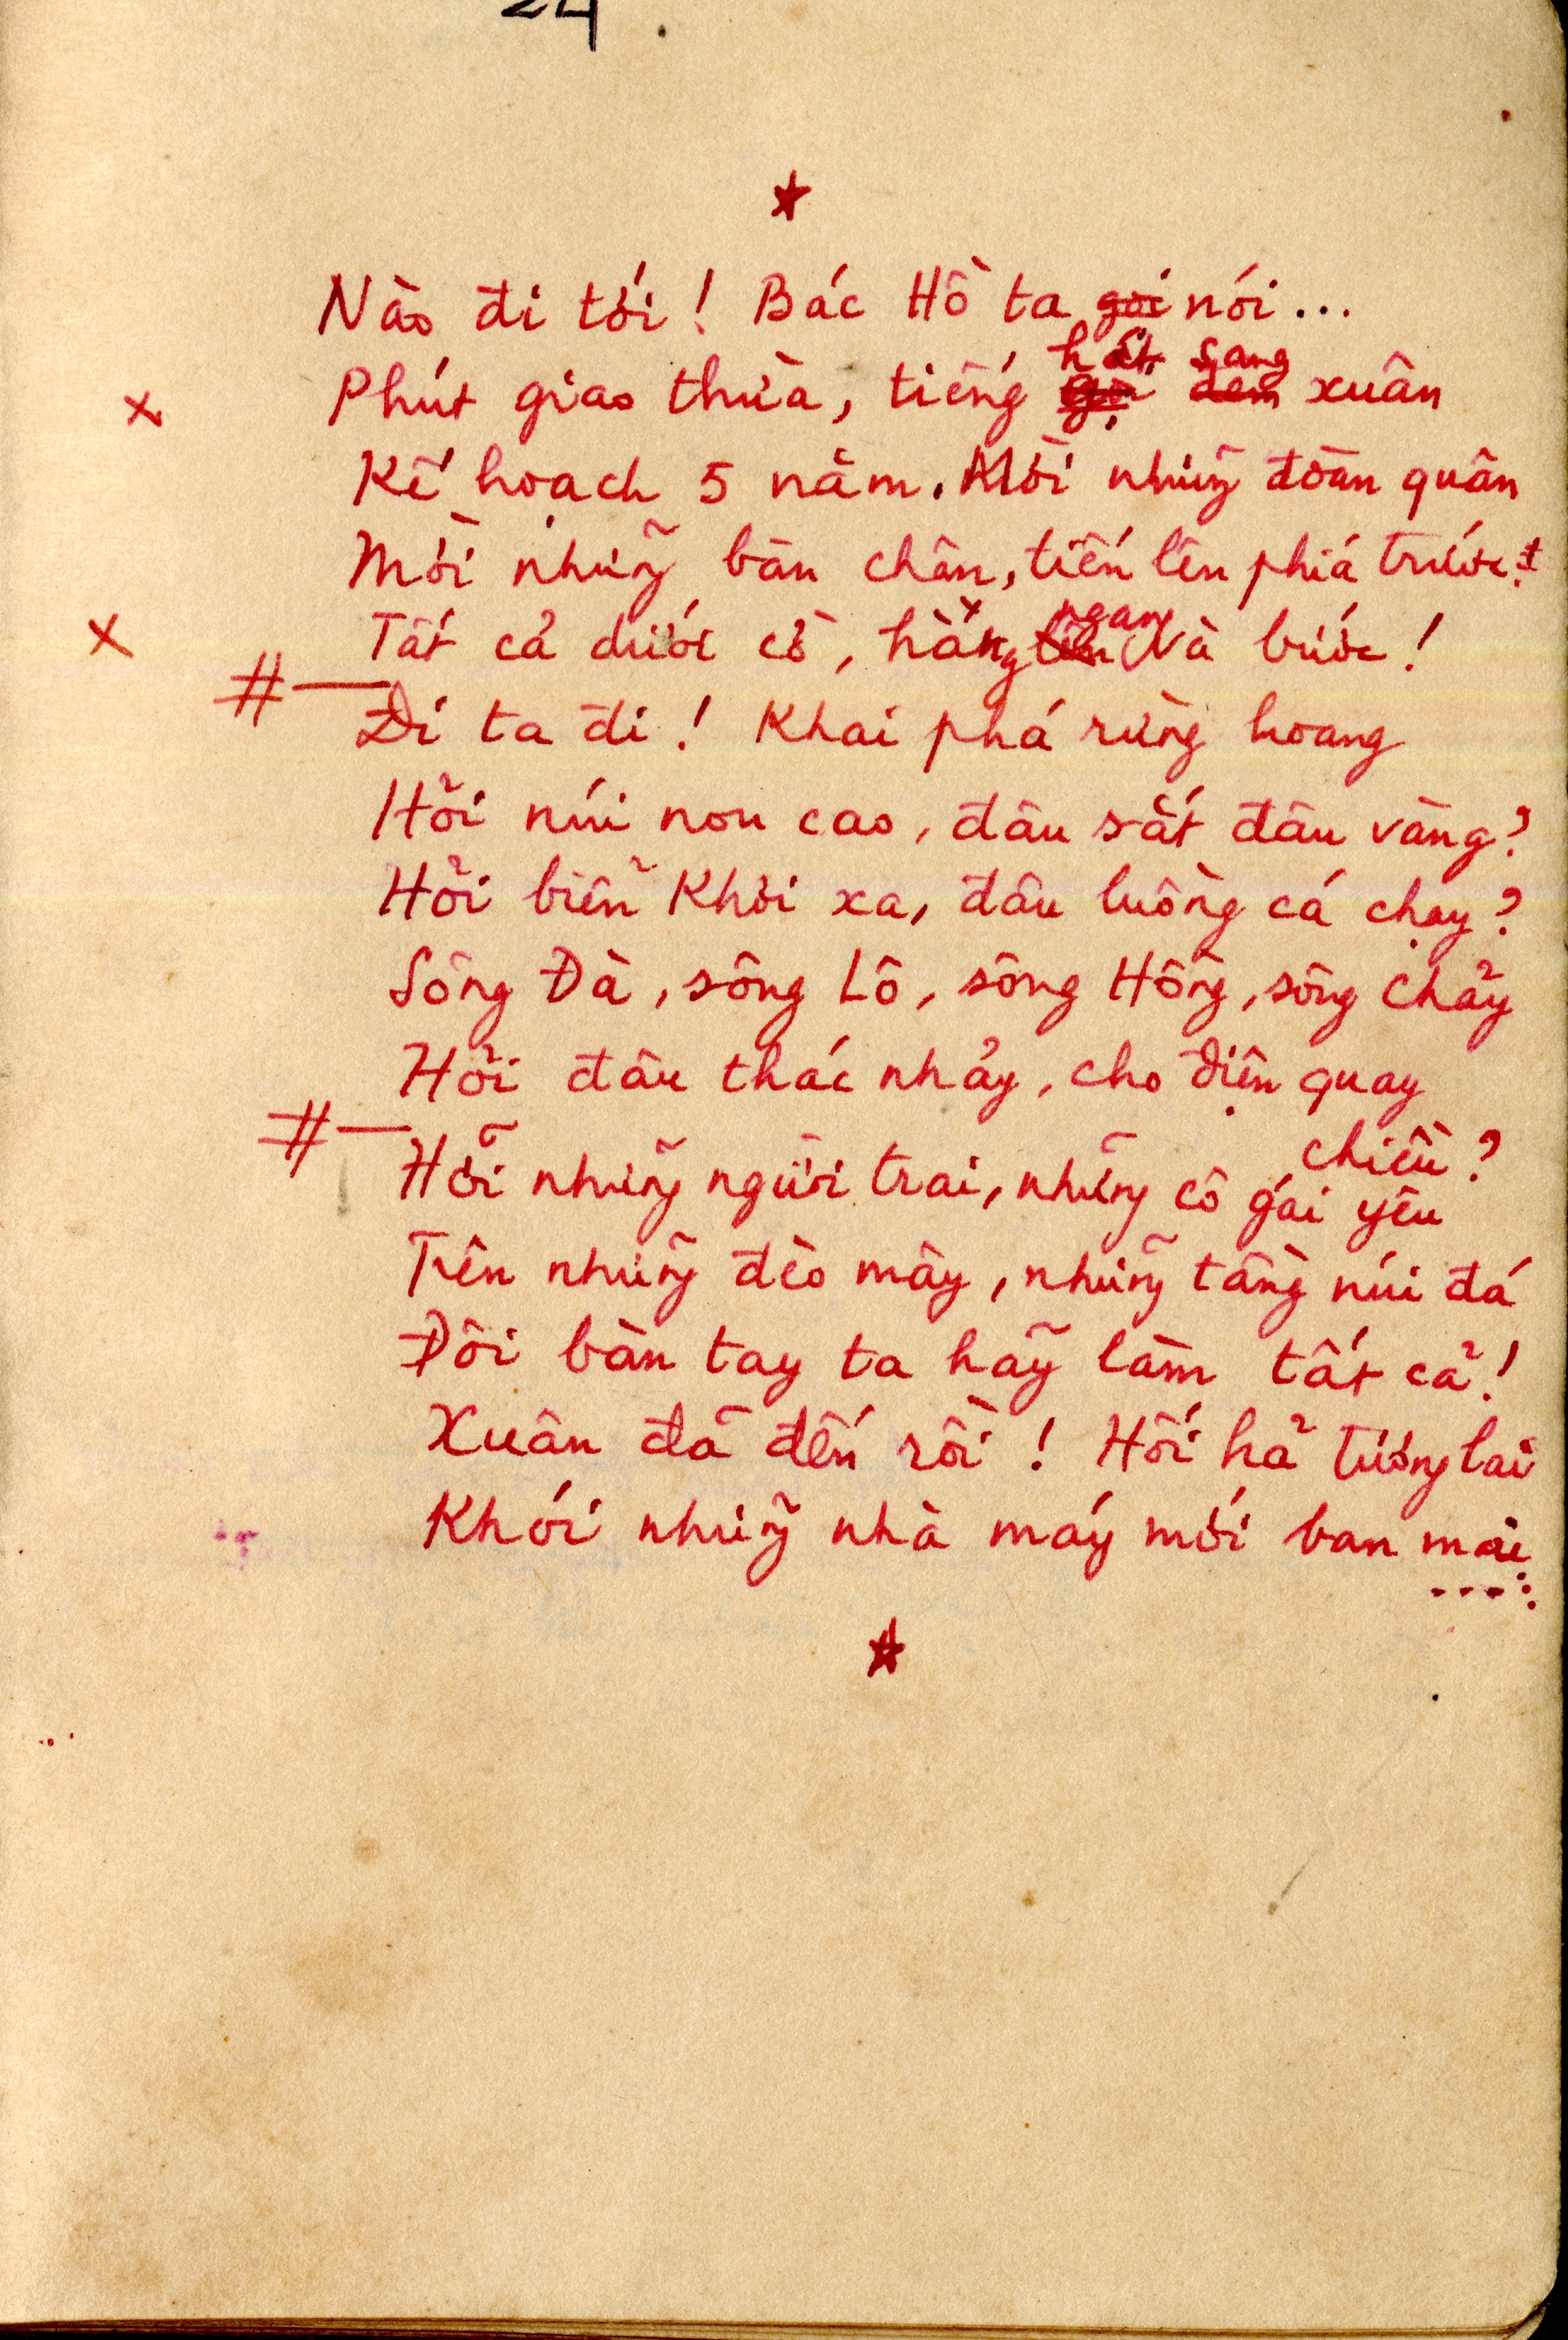 24
Nào đi tới! Bác Hồ ta gọi nói...
hát sang
Phút giao thừa, tiếng gọi đêm xuân
Kế hoạch 5 năm. Mời những đoàn quân
Mời những bàn chân, tiến lên phía trước.
ngang
Tất cả dưới cờ, hàng và bước!
# Đi ta đi! Khai phá rừng hoang
Hỏi núi non cao, đâu sắt đâu vàng?
Hỏi biển khơi xa, đâu luồng cá chạy?
Sông Đà, sông Lô, sông Hồng, sông Chảy
Hỏi đâu thác nhảy, cho điện quay chiều?
# Hỡi những người trai, những cô gái yêu
Trên những đèo mây, những tầng núi đá
Đôi bàn tay ta hãy làm tất cả!
Xuân đã đến rồi! Hối hả tương lai
Khói những nhà máy mới ban mai
....: